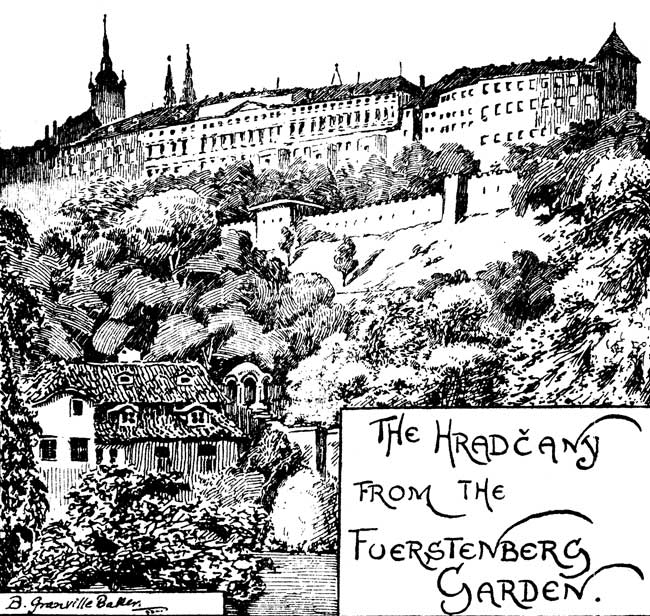 THE HRADČANY
FROM THE
FUERSTENBERG
GARDEN.
B. Granville Baker